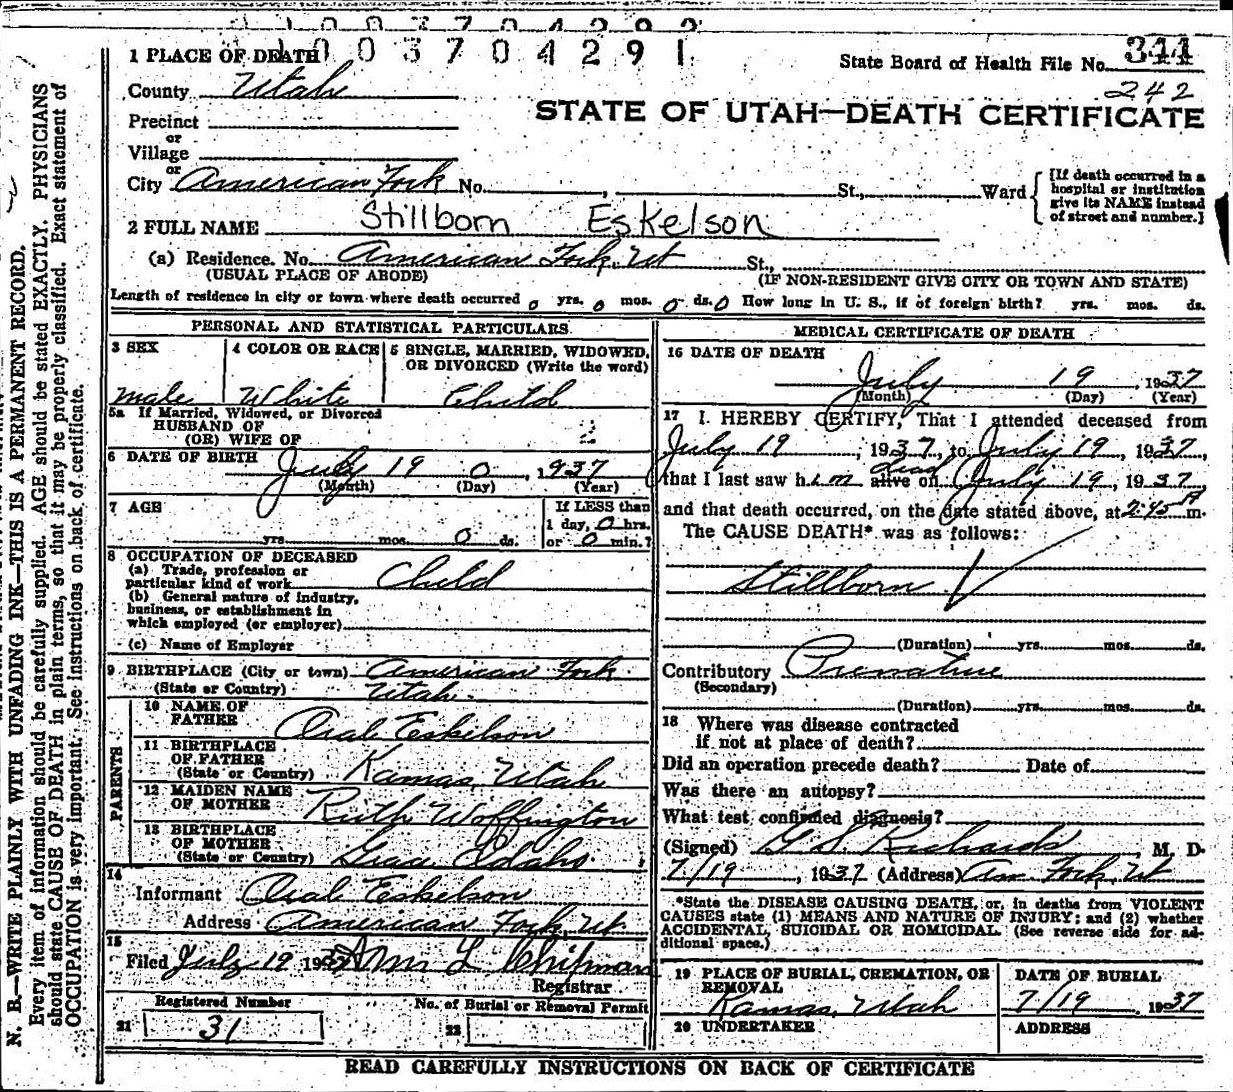 1003704291
1 PLACE OF DEATH
State Board of Health File No. 311
County Utah
242
STATE OF UTAH—DEATH CERTIFICATE
Precinct
or
Village
or
City American Fork No. , St., Ward
[If death occurred in a
hospital or institution
give its NAME instead
of street and number.]
2 FULL NAME Stillborn Eskelson
(a) Residence. No. American Fork, Ut St.,
(USUAL PLACE OF ABODE) (IF NON-RESIDENT GIVE CITY OR TOWN AND STATE)
Length of residence in city or town where death occurred 0 yrs. 0 mos. 0 ds. 0 How long in U. S., if of foreign birth? yrs. mos. ds.
PERSONAL AND STATISTICAL PARTICULARS
3 SEX 4 COLOR OR RACE 5 SINGLE, MARRIED, WIDOWED,
OR DIVORCED (Write the word)
male White Child
5a If Married, Widowed, or Divorced
HUSBAND OF
(OR) WIFE OF
6 DATE OF BIRTH July 19 0, 1937
(Month) (Day) (Year)
7 AGE If LESS than
1 day, 0 hrs.
yrs. mos. 0 ds. or 0 min.?
8 OCCUPATION OF DECEASED
(a) Trade, profession or
particular kind of work Child
(b) General nature of industry,
business, or establishment in
which employed (or employer)
(c) Name of Employer
9 BIRTHPLACE (City or town) American Fork
(State or Country) Utah.
PARENTS
10 NAME OF
FATHER Oral Eskelson
11 BIRTHPLACE
OF FATHER
(State or Country) Kamas, Utah
12 MAIDEN NAME
OF MOTHER Ruth Woffington
13 BIRTHPLACE
OF MOTHER
(State or Country) Grace Idaho.
14
Informant Oral Eskelson
Address American Fork, Ut.
15
Filed July 19 1937 Wm L Chipman
Registrar
Registered Number No. of Burial or Removal Permit
21 31 22
MEDICAL CERTIFICATE OF DEATH
16 DATE OF DEATH
July 19, 1937
(Month) (Day) (Year)
17 I. HEREBY CERTIFY, That I attended deceased from
July 19, 1937, to July 19, 1937,
dead
that I last saw him alive on July 19, 1937,
and that death occurred, on the date stated above, at 2:45 A m.
The CAUSE DEATH* was as follows:
Stillborn
(Duration) yrs. mos. ds.
Contributory Premature
(Secondary)
(Duration) yrs. mos. ds.
18 Where was disease contracted
if not at place of death?
Did an operation precede death? Date of
Was there an autopsy?
What test confirmed diagnosis?
(Signed) G. S. Richards M. D.
7/19, 1937 (Address) Am. Fork, Ut
*State the DISEASE CAUSING DEATH, or, in deaths from VIOLENT
CAUSES state (1) MEANS AND NATURE OF INJURY; and (2) whether
ACCIDENTAL, SUICIDAL OR HOMICIDAL. (See reverse side for ad-
ditional space.)
19 PLACE OF BURIAL, CREMATION, OR
REMOVAL
Kamas, Utah
DATE OF BURIAL
7/19 1937
20 UNDERTAKER ADDRESS
READ CAREFULLY INSTRUCTIONS ON BACK OF CERTIFICATE
N. B.—WRITE PLAINLY WITH UNFADING INK—THIS IS A PERMANENT RECORD.
Every item of information should be carefully supplied. AGE should be stated EXACTLY. PHYSICIANS
should state CAUSE OF DEATH in plain terms, so that it may be properly classified. Exact statement of
OCCUPATION is very important. See instructions on back of certificate.